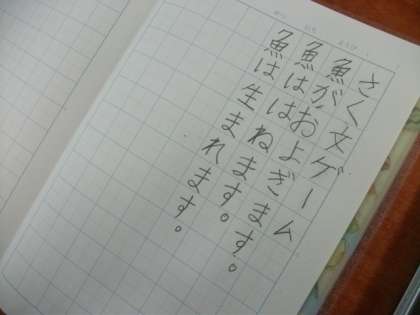 さく文ゲーム
魚がおよぎます。
魚ははねます。
魚は生まれます。